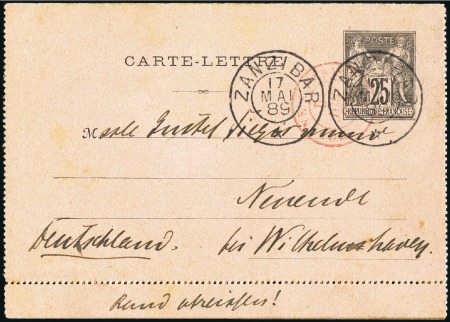 POSTE
CARTE-LETTRE
ZANZIBAR
17
MAI
89
ZANZ
25
REPUBLIQUE FRANÇAISE
M
Neuende
Deutschland. bei Wilhelmshaven.
Rand abreissen!